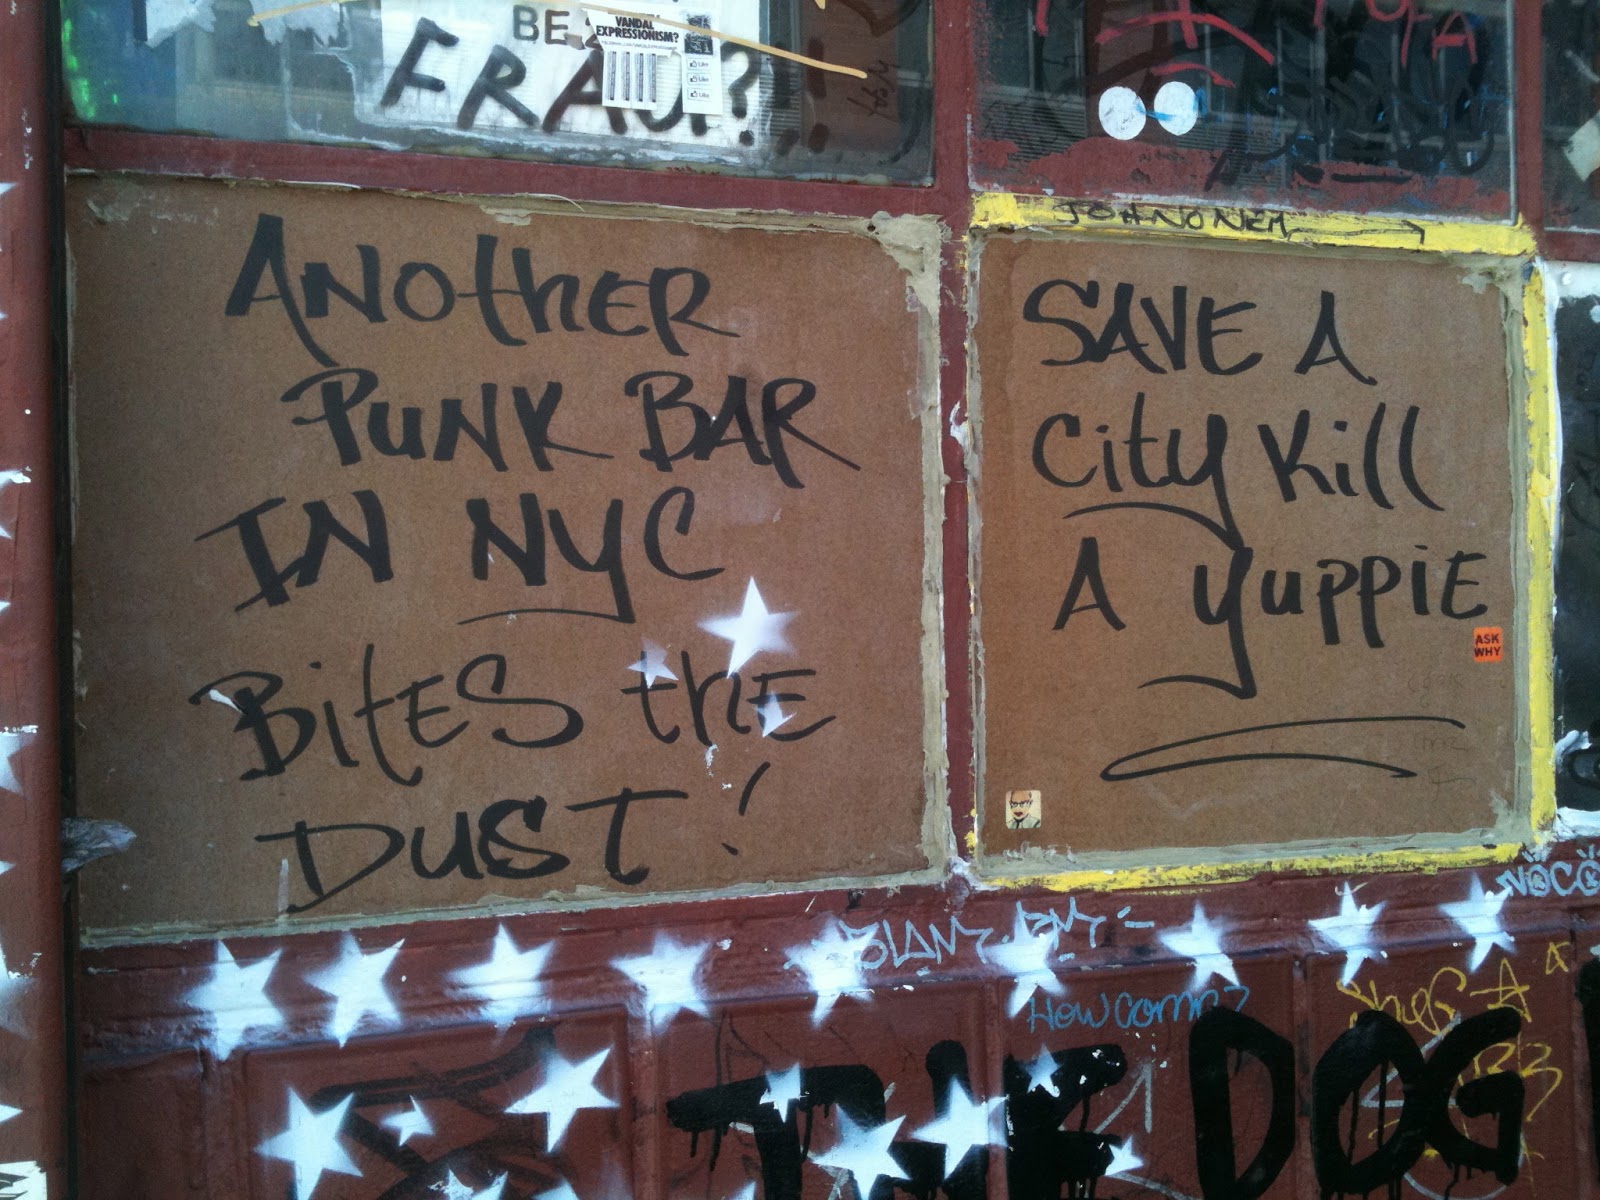 BE
VANDAL
EXPRESSIONISM?
Like
Like
Like
JOHNONEM
ANOthER
PUNK BAR
IN NYC
BitES thE
DUST!
SAVE A
City Kill
A yuppiE
ASK
WHY
NOCO
How comm
THE DOG